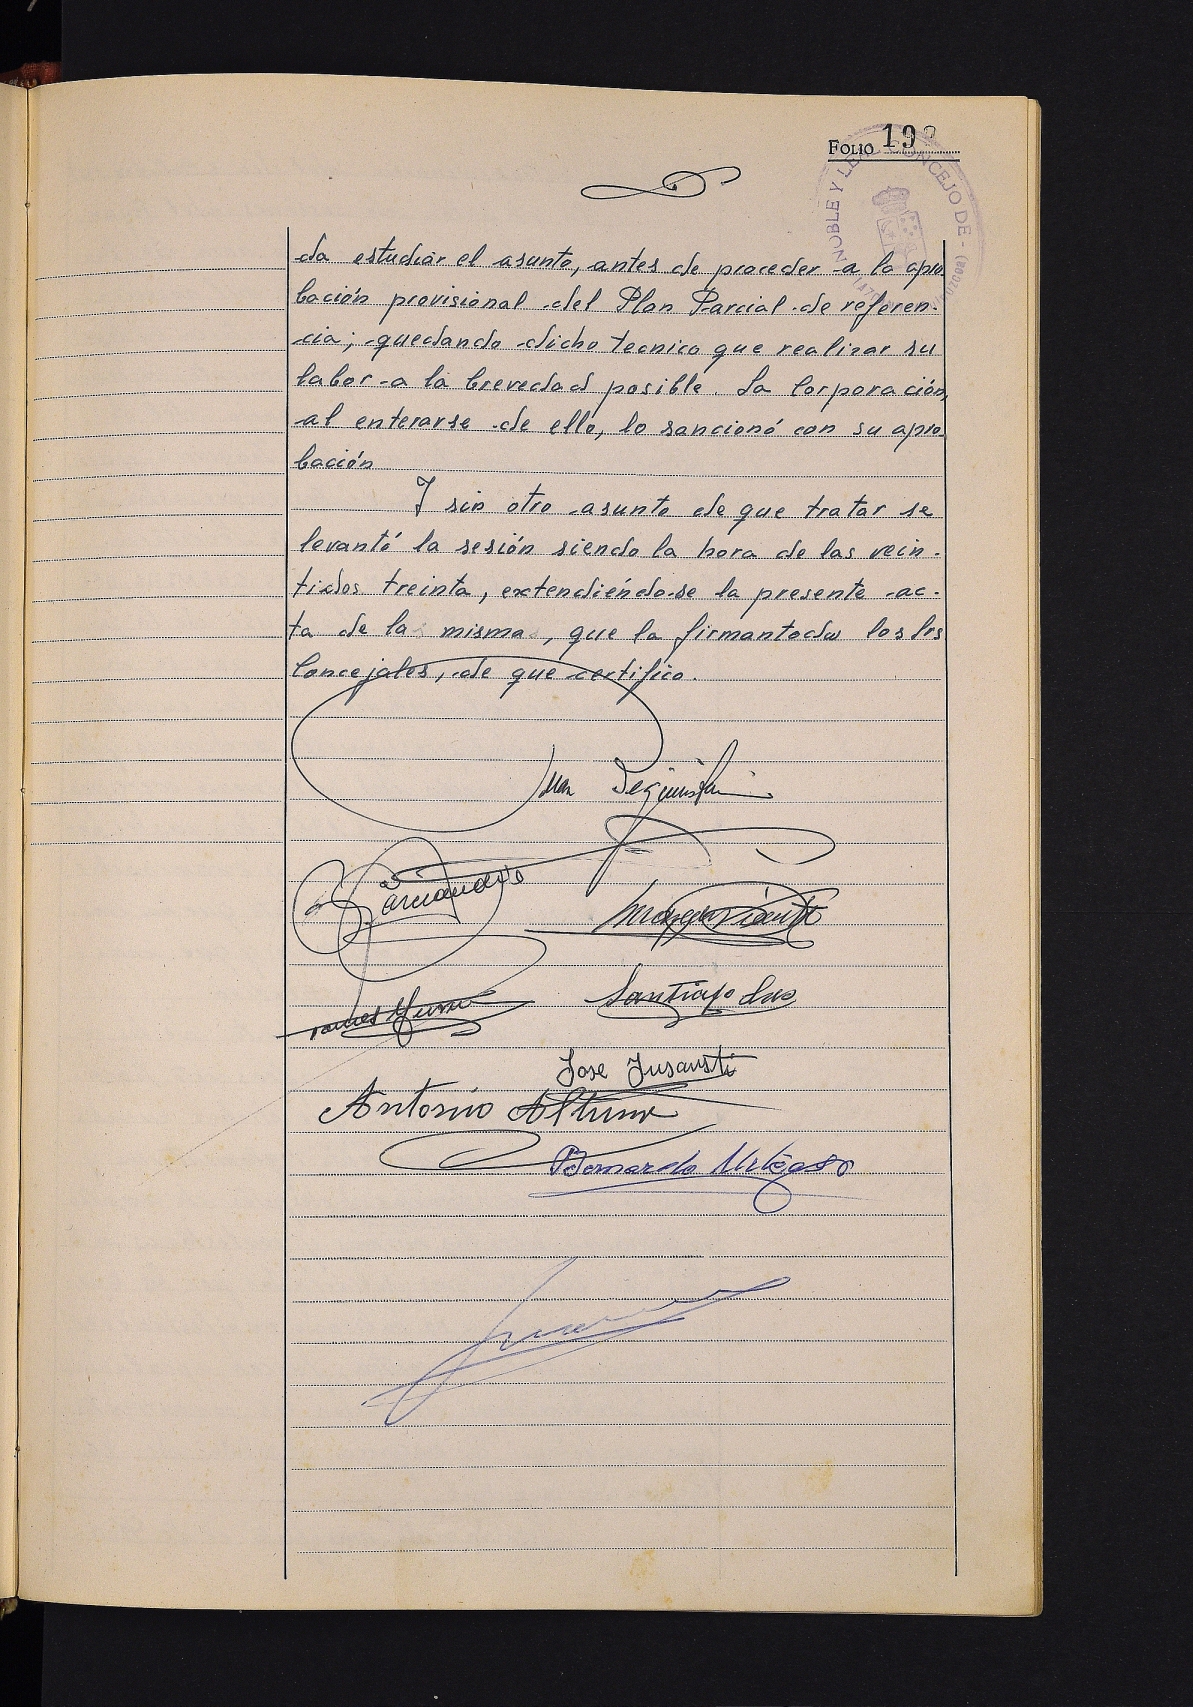 FOLIO 19
NOBLE Y LEAL CONCEJO DE
da estudiar el asunto, antes de proceder a la apro
bación provisional del Plan Parcial de referen-
cia; quedando dicho tecnico que realizar su
labor a la brevedad posible. La Corporación,
al enterarse de ello, lo sancionó con su apro
bación
Y sin otro asunto de que tratar se
levantó la sesión siendo la hora de las vein-
tidos treinta, extendiéndose la presente ac-
ta de la misma, que la firman todos los Srs
Concejales, de que certifico.
Juan
Santiago
Jose
Antonio Altuna
Bernardo